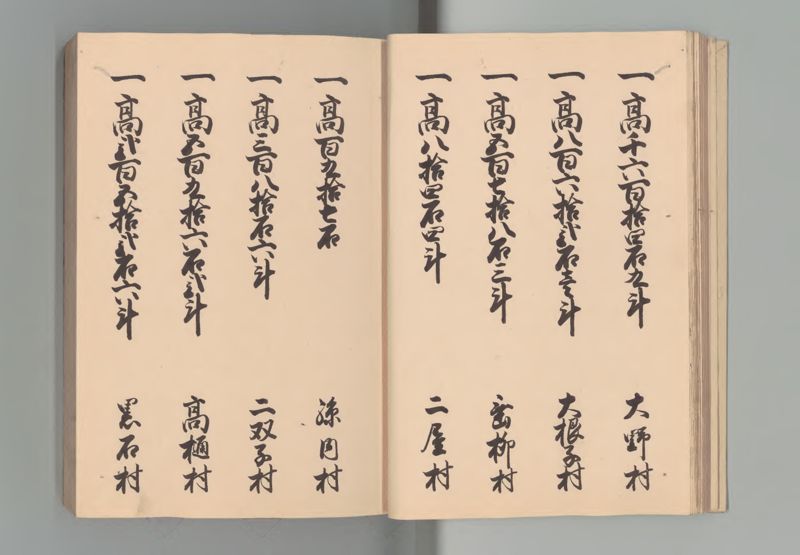 一高千六百拾四石九斗 大野村
一高八百六拾弐石壱斗 大根子村
一高五百七拾八石三斗 垂柳村
一高八拾四石四斗 二屋村
一高百九拾七石 村
一高三百八拾石六斗 二双子村
一高五百九拾六石弐斗 高樋村
一高弐百五拾弐石六斗 黒石村